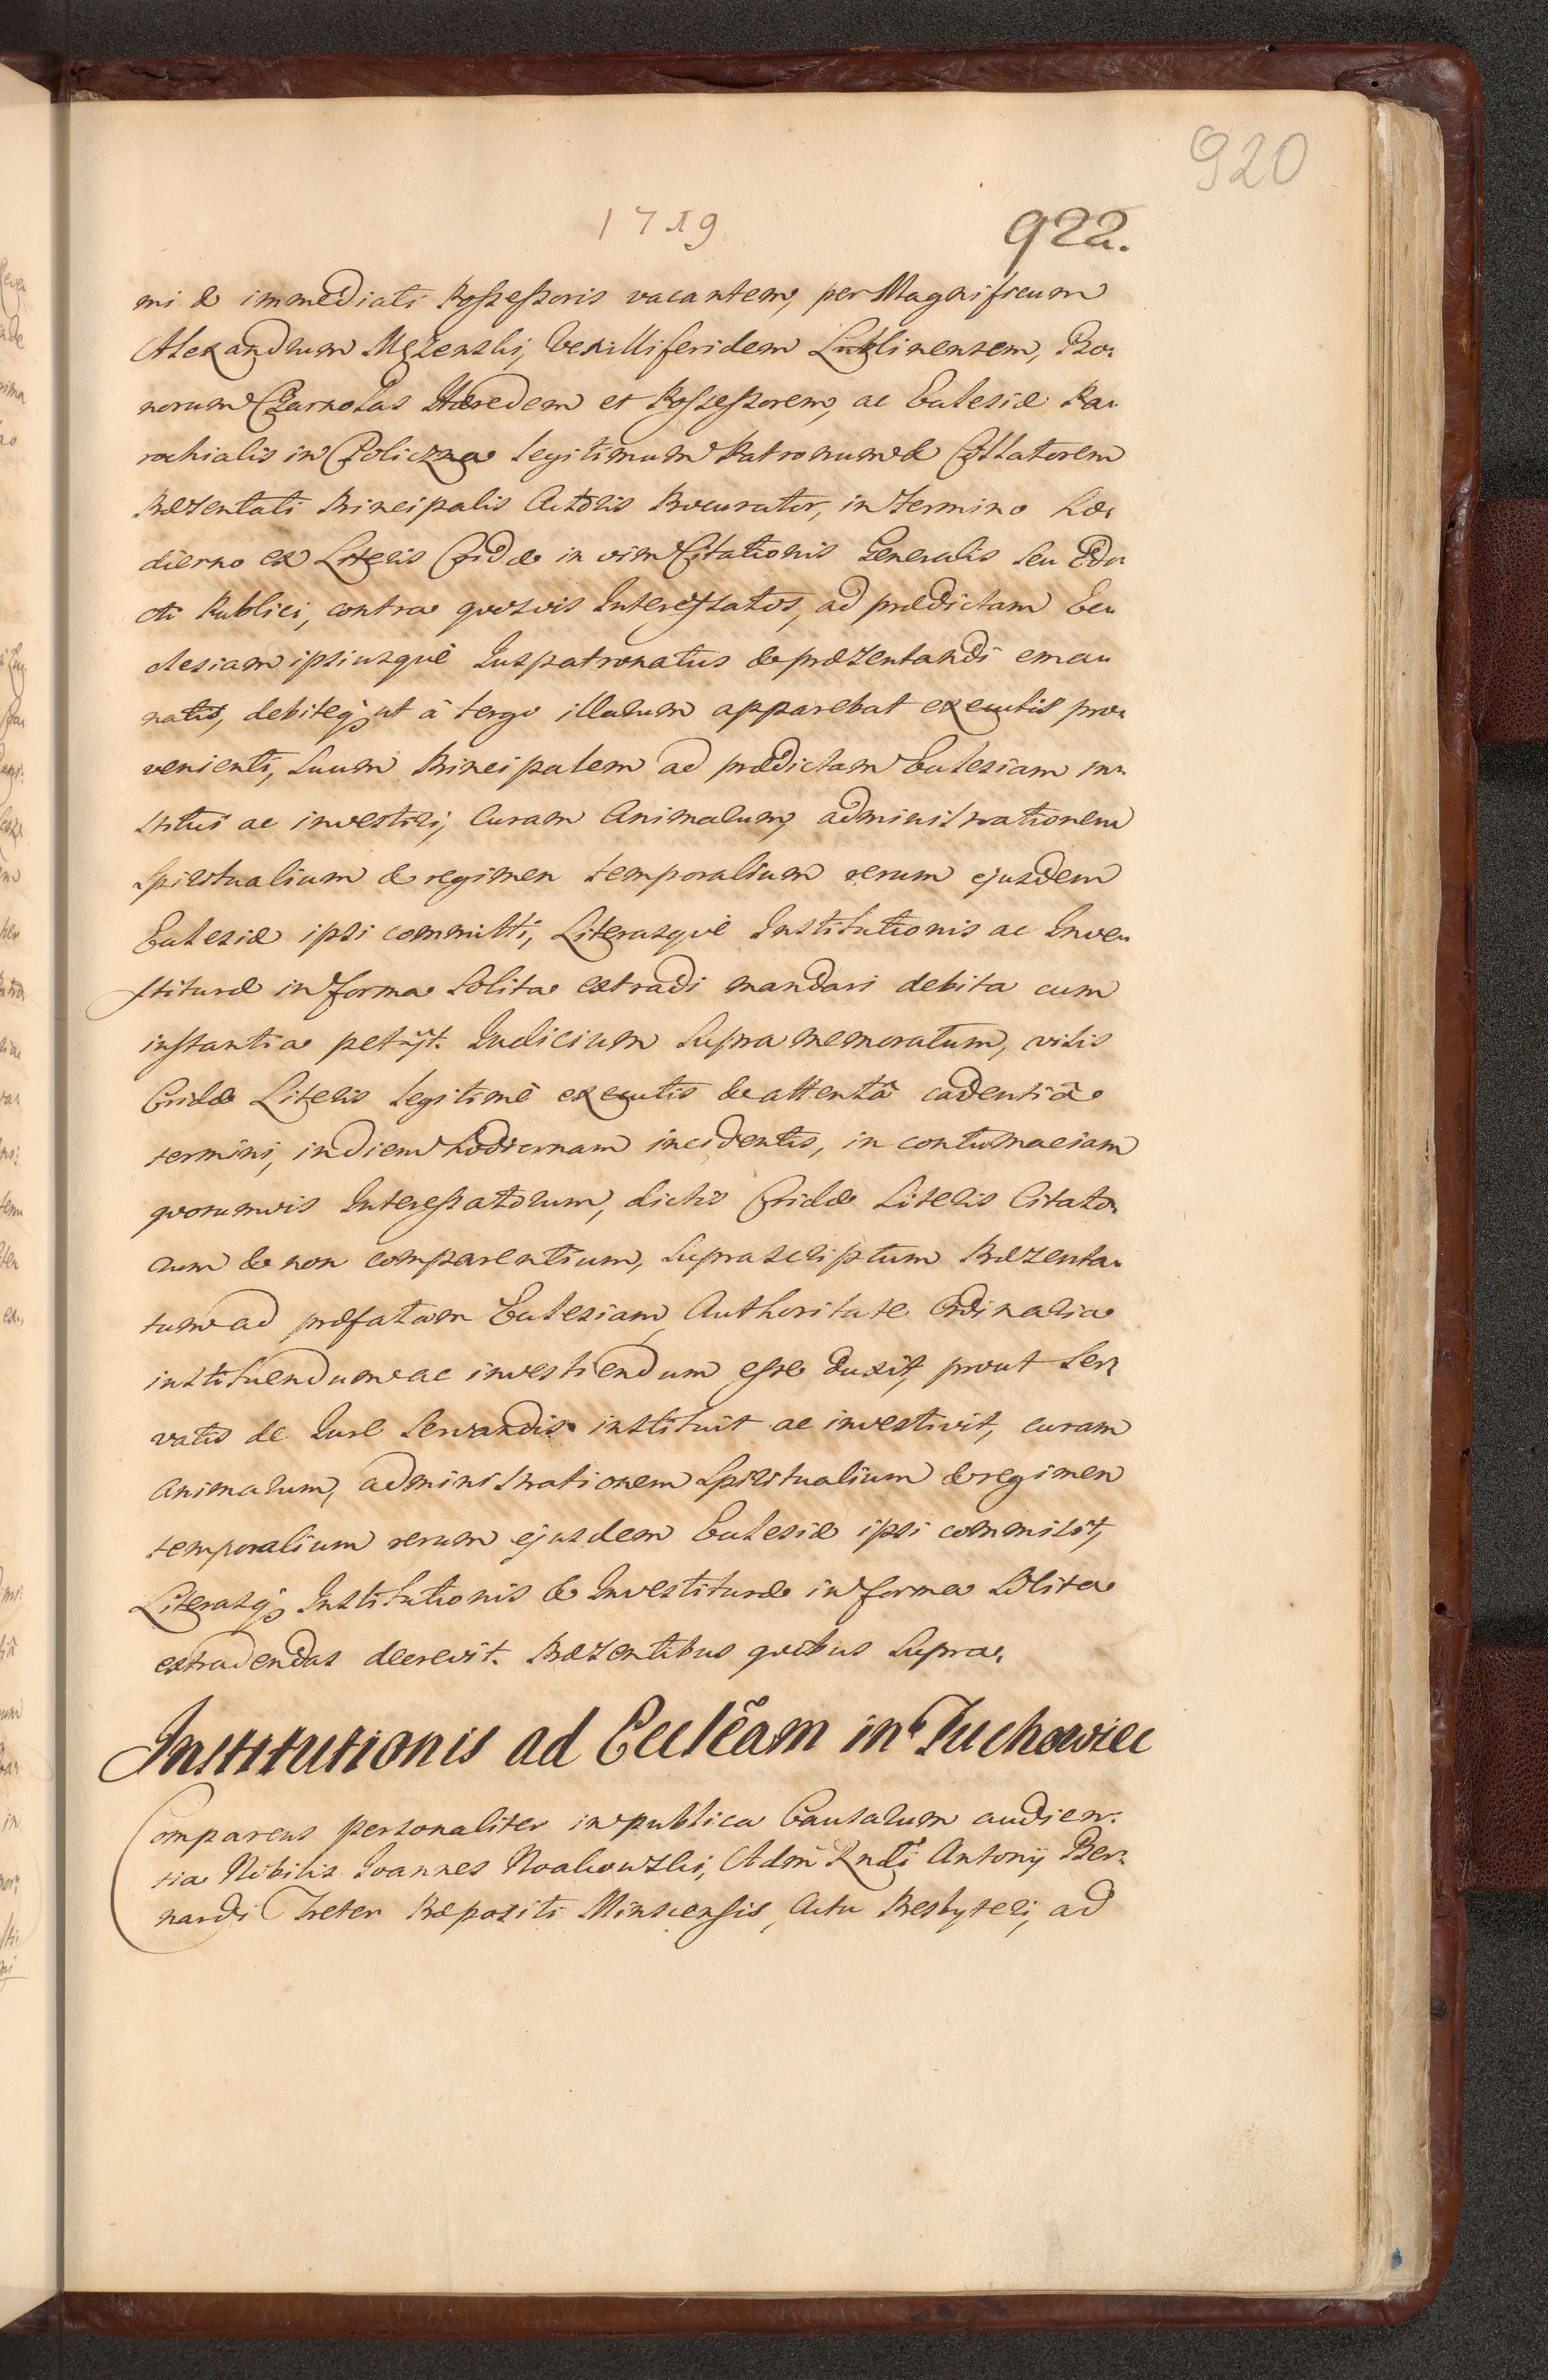 920
1719
922.
mi & immediati Possessoris vacantem, per Magnificum
Alexandrum Mężenski, Vexilliferidem Lublinensem, Bo-
norum Czarnolas Hæredem et Possessorem, ac Ecclesiæ Pa-
rochialis in Policzna legitimum Patronum & Collatorem
Præzentati Principalis Actoris Procurator, in Termino ho-
dierno ex Literis Cridæ in vim Citationis Generalis seu Edi-
cti Publici, contra quosvis Interessatos, ad prædictam Ec-
clesiam ipsiusquè Juspatronatus & præzentandi ema-
natis, debiteq; ut à tergo illarum apparebat executis pro-
venienti, suum Principalem ad prædictam Ecclesiam in-
stitui ac investiri, Curam Animarum, administrationem
Spiritualium & regimen temporalium rerum ejusdem
Ecclesiæ ipsi committi, Literasquè Institutionis ac Inve-
stituræ in forma solita extradi mandari debita cum
instantia petijt. Judicium supra memoratum, visis
Cridæ Literis legitimè executis & attentâ cadentiâ
termini, in diem hodiernam incidentis, in contumaciam
quorumvis Interessatorum, dictis Cridæ Literis Citato-
rum & non comparentium, suprascriptum Præzenta-
tum ad præfatam Ecclesiam Authoritate Ordinaria
instituendum ac investiendum esse duxit, prout ser-
vatis de Jure servandis instituit ac investivit, curam
animarum, administrationem Spiritualium & regimen
temporalium rerum ejusdem Ecclesiæ ipsi commisit,
Literasq; Institutionis & Investituræ in forma solita
extradendas decrevit. Præzentibus quibus supra.
Institutionis ad Eccleãm in Tuchowicc
Comparens personaliter in publica Causarum audien-
tia Nobilis Joannes Noakowski, Adm Rndi Antonij Ber-
nardi Treter Præpositi Minscensis, Actu Presbyteri, ad